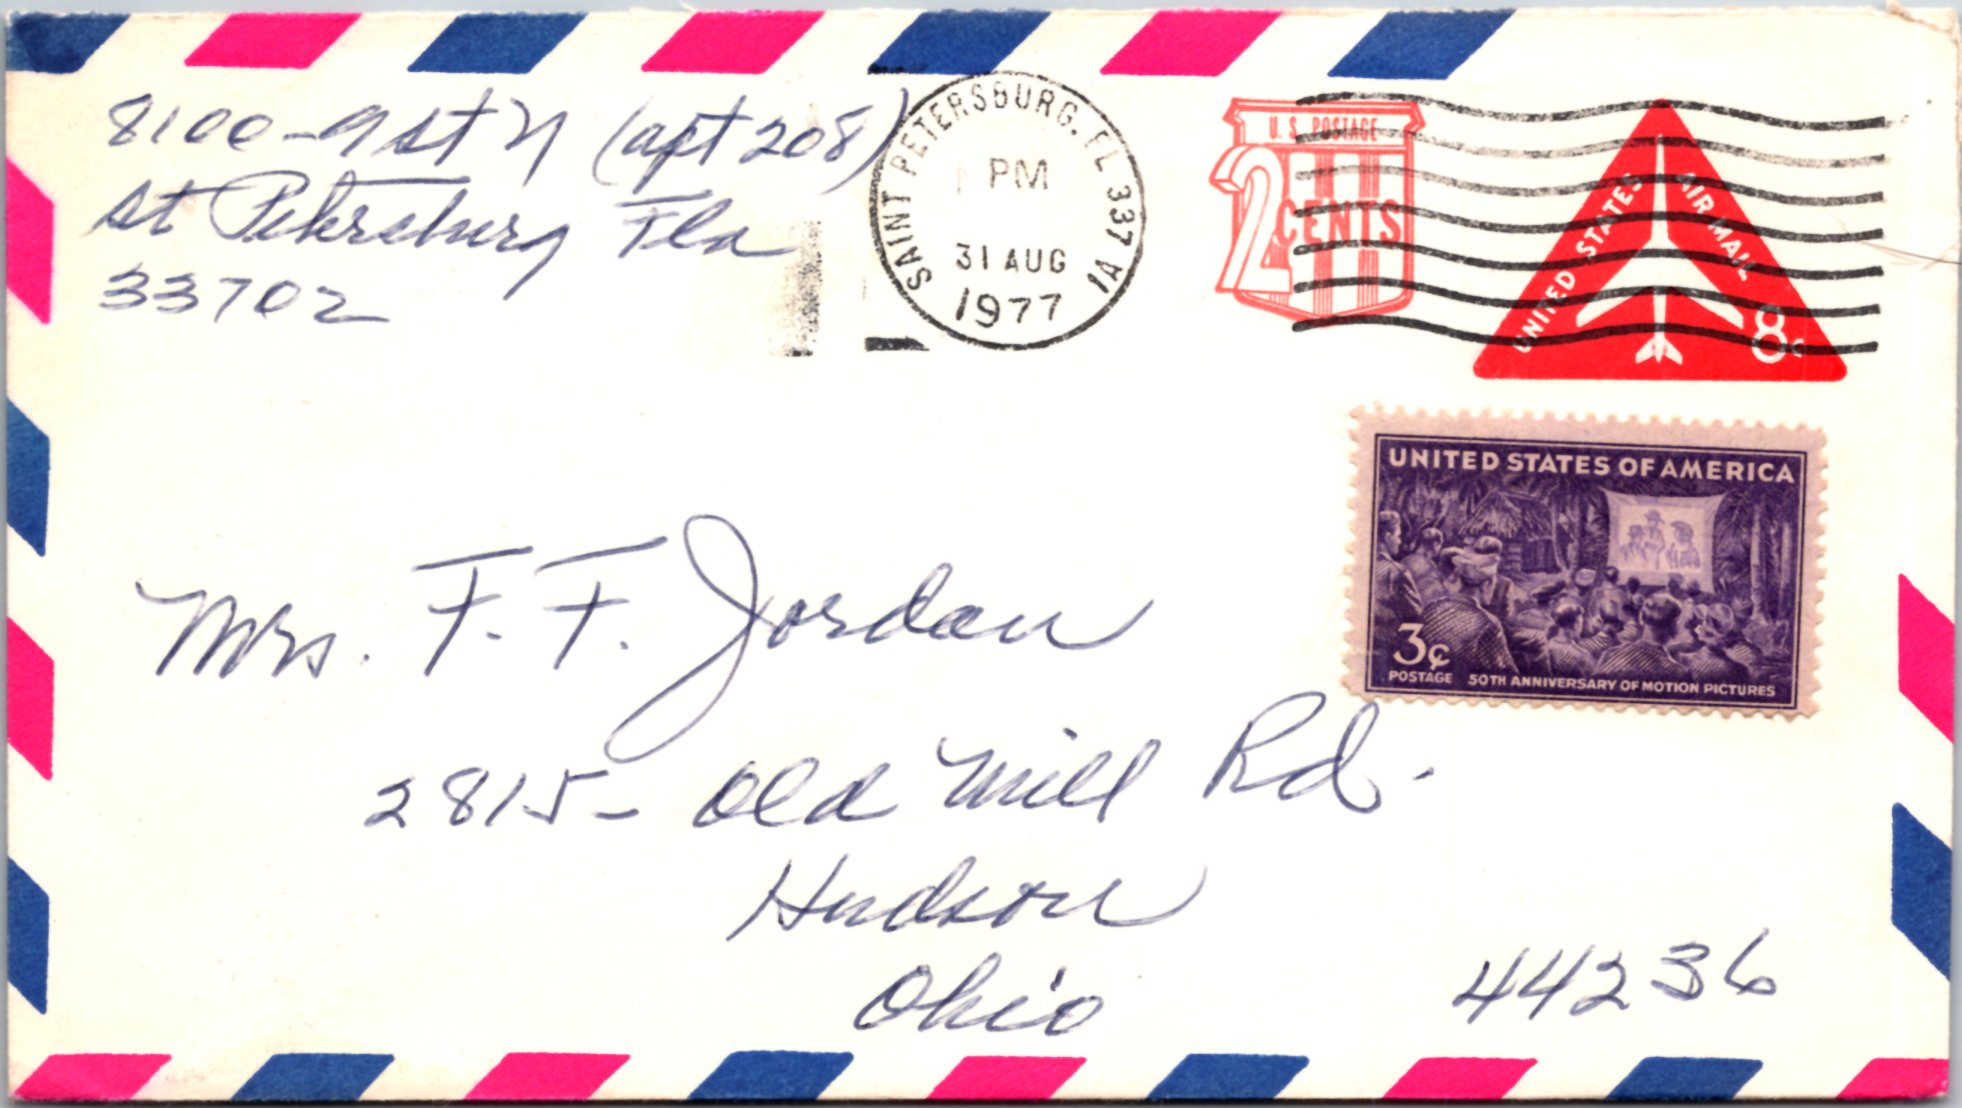 8100-9 st N (apt 208)
St Petersburg Fla
33702
SAINT PETERSBURG, FL 337 A1
PM
31 AUG
1977
U.S. POSTAGE
2
CENTS
UNITED STATES
AIR MAIL
8c
UNITED STATES OF AMERICA
3¢
POSTAGE 50TH ANNIVERSARY OF MOTION PICTURES
Mrs. F. F. Jordan
2815- Old Mill Rd.
Hudson
Ohio 44236